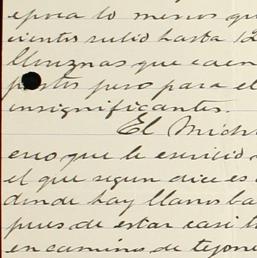 epoca lo menos qu
cientos subió hasta 12
lloviznas que caen
pastos pero para el
insignificantes.
El Mich
eno que le envició
el que segun dice es
donde hay llanos ba
pues de estar casi t
en camino de tejone